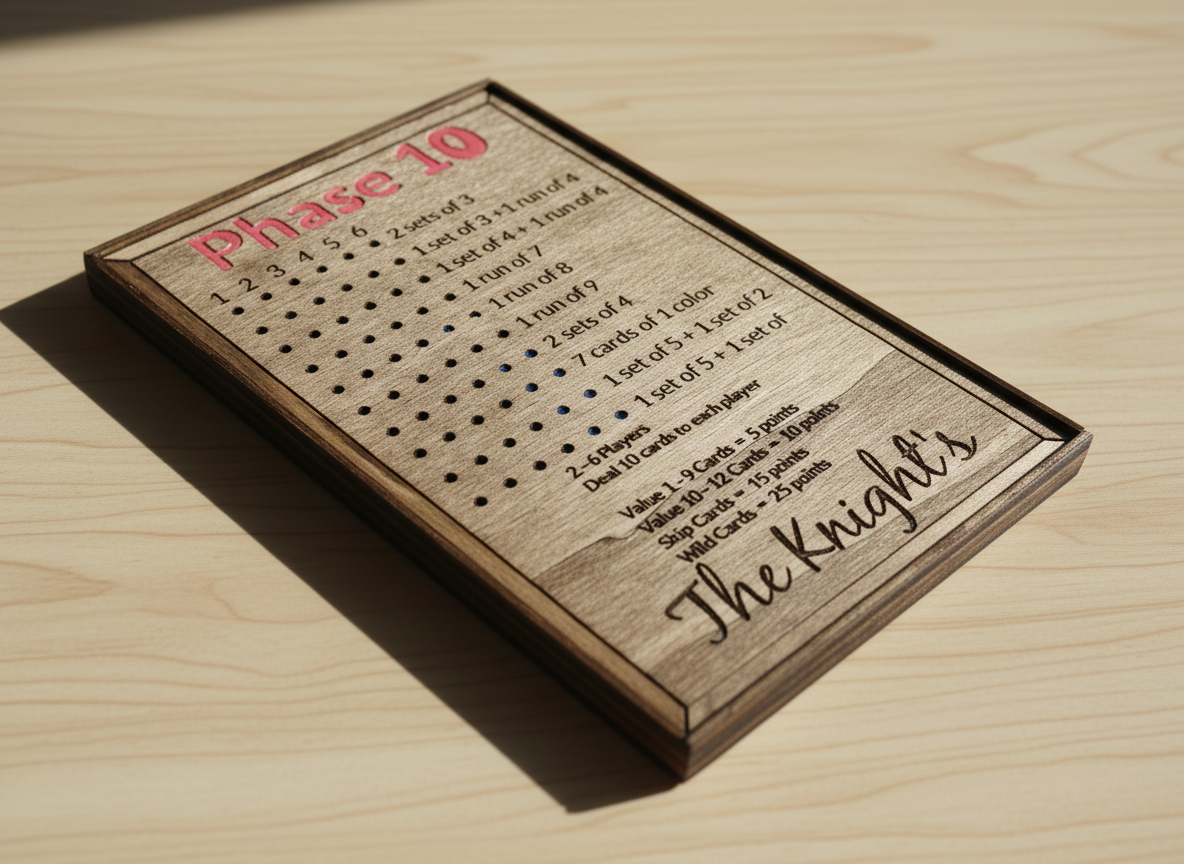 Phase 10
1 2 3 4 5 6
2 sets of 3
1 set of 3 + 1 run of 4
1 set of 4 + 1 run of 4
1 run of 7
1 run of 8
1 run of 9
2 sets of 4
7 cards of 1 color
1 set of 5 + 1 set of 2
1 set of 5 + 1 set of
2-6 Players
Deal 10 cards to each player
Value 1-9 Cards = 5 points
Value 10-12 Cards = 10 points
Skip Cards = 15 points
Wild Cards = 25 points
The Knight's